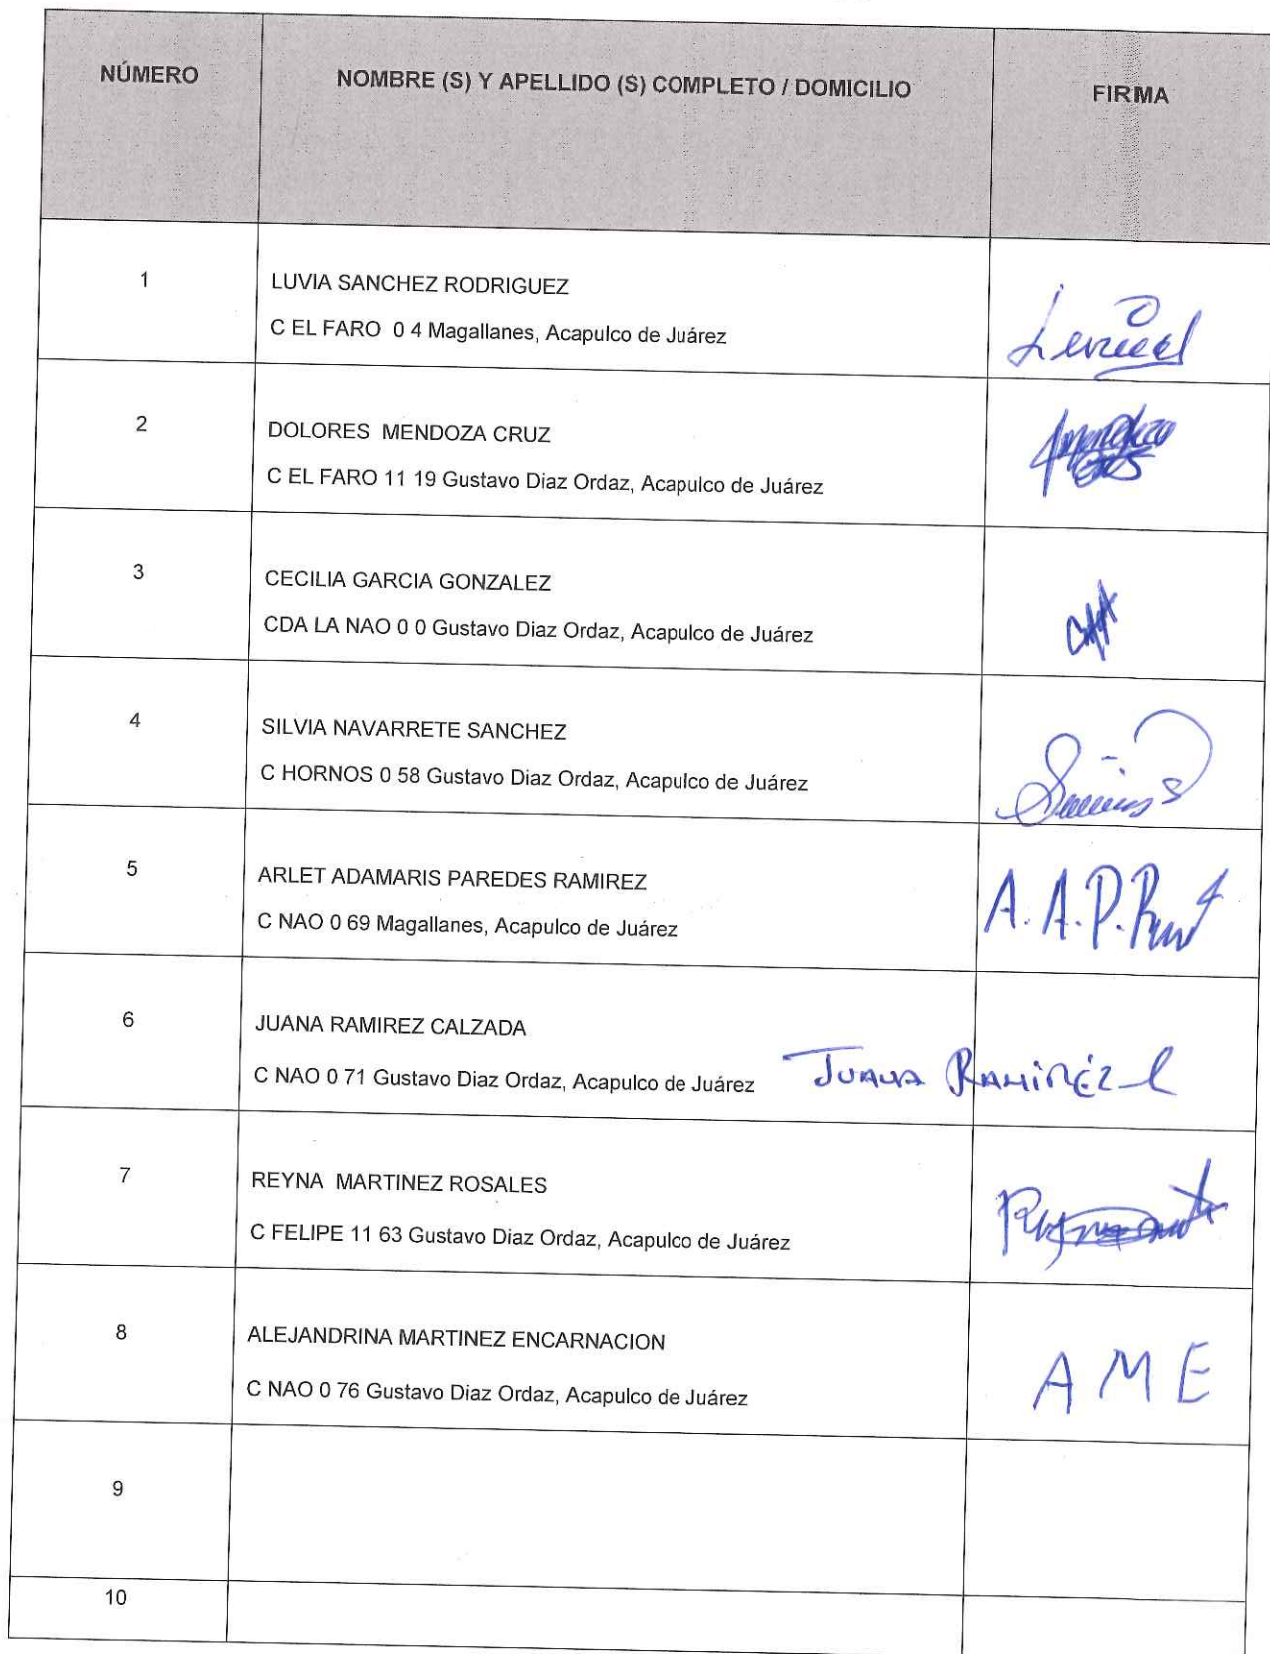 NÚMERO
NOMBRE (S) Y APELLIDO (S) COMPLETO / DOMICILIO
FIRMA
1
LUVIA SANCHEZ RODRIGUEZ
C EL FARO 0 4 Magallanes, Acapulco de Juárez
2
DOLORES MENDOZA CRUZ
C EL FARO 11 19 Gustavo Diaz Ordaz, Acapulco de Juárez
3
CECILIA GARCIA GONZALEZ
CDA LA NAO 0 0 Gustavo Diaz Ordaz, Acapulco de Juárez
4
SILVIA NAVARRETE SANCHEZ
C HORNOS 0 58 Gustavo Diaz Ordaz, Acapulco de Juárez
5
ARLET ADAMARIS PAREDES RAMIREZ
C NAO 0 69 Magallanes, Acapulco de Juárez
A. A. P.
6
JUANA RAMIREZ CALZADA
C NAO 0 71 Gustavo Diaz Ordaz, Acapulco de Juárez
JUANA RAMIRÉZ C
7
REYNA MARTINEZ ROSALES
C FELIPE 11 63 Gustavo Diaz Ordaz, Acapulco de Juárez
8
ALEJANDRINA MARTINEZ ENCARNACION
C NAO 0 76 Gustavo Diaz Ordaz, Acapulco de Juárez
A M E
9
10